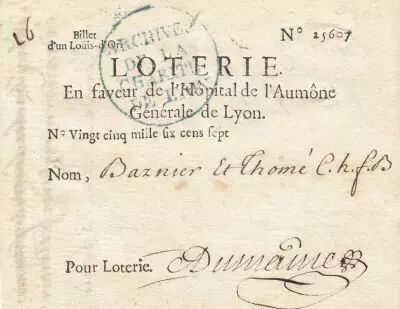 26
Billet
d'un Loüis-d'Or.
N° 25607
ARCHIVES
DE LA
CHARITÉ
DE LYON
LOTERIE.
En faveur de l'Hôpital de l'Aumône
Génerale de Lyon.
N° Vingt cinq mille six cens sept
Nom, Baznier Et Thomé C.h.f.B
Pour Loterie. Dumaine